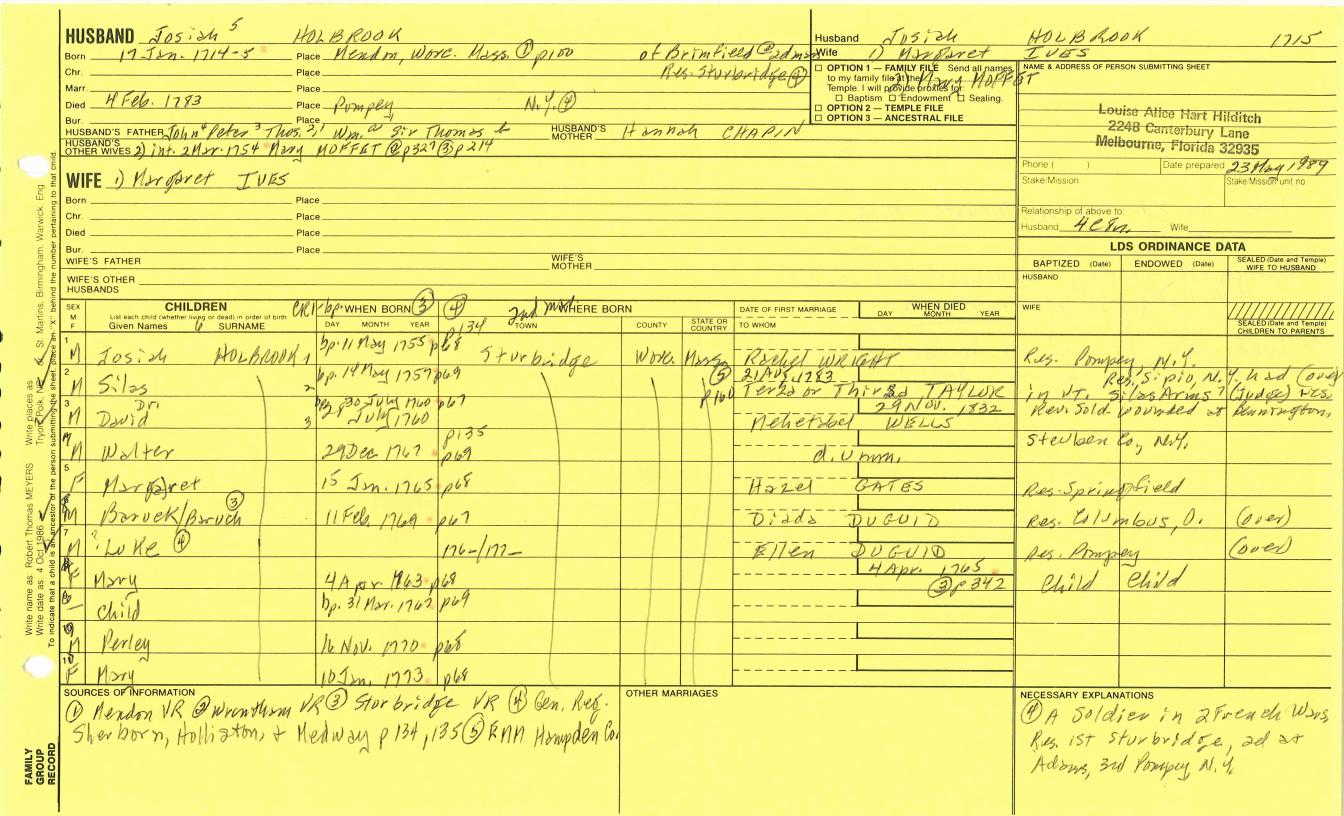 HUSBAND Josiah 5 HOLBROOK
Born 17 Jan. 1714-5 Place Mendon, Worc. Mass. ① p100 of Brimfield
Chr. Place Res. Sturbridge ④
Marr. Place
Died 4 Feb. 1783 Place Pompey N.Y. ④
Bur. Place
HUSBAND'S FATHER John 4 Peter 3 Thos. 2, 1 Wm. a Sir Thomas b HUSBAND'S MOTHER Hannah CHAPIN
HUSBAND'S OTHER WIVES 2) int. 2 Mar. 1754 Mary MOFFET ② p327 ③ p214
WIFE 1) Margaret IVES
Born Place
Chr. Place
Died Place
Bur. Place
WIFE'S FATHER WIFE'S MOTHER
WIFE'S OTHER HUSBANDS
Husband Josiah HOLBROOK 1715
Wife 1) Margaret IVES
2) Mary MOFFET
OPTION 1 — FAMILY FILE Send all names
to my family file at the
Temple. I will provide proxies for:
Baptism Endowment Sealing.
OPTION 2 — TEMPLE FILE
OPTION 3 — ANCESTRAL FILE
NAME & ADDRESS OF PERSON SUBMITTING SHEET
Louise Alice Hart Hilditch
2248 Canterbury Lane
Melbourne, Florida 32935
Phone ( ) Date prepared 23 May 1989
Stake/Mission Stake/Mission unit no.
Relationship of above to:
Husband 4C8rn. Wife
LDS ORDINANCE DATA
BAPTIZED (Date) ENDOWED (Date) SEALED (Date and Temple) WIFE TO HUSBAND
HUSBAND
WIFE
SEALED (Date and Temple) CHILDREN TO PARENTS
SEX M F
CHILDREN
List each child (whether living or dead) in order of birth
Given Names SURNAME
bp. WHEN BORN ③ ④
DAY MONTH YEAR
2nd mar. WHERE BORN
TOWN COUNTY STATE OR COUNTRY
DATE OF FIRST MARRIAGE
TO WHOM
WHEN DIED
DAY MONTH YEAR
1 M Josiah HOLBROOK 1 bp. 11 May 1755 p134 p68 Sturbridge Worc. Mass. Rachel WRIGHT Res. Pompey, N.Y.
2 M Silas 2 bp. 14 May 1757 p69 ⑤ p160 21 Aug. 1783 Terza or Thirza TAYLOR Res. Sipio, N.Y. had (over in VT. Silas Arms? (Judge) Res.
3 M Dr. David 3 bp. 30 July 1760 p67 28 July 1760 29 Nov. 1832 Mehetabel WELLS Rev. Sold. wounded at Bennington,
4 M Walter 29 Dec 1767 p135 p69 d. unm. Steuben Co., N.Y.
5 F Margaret 15 Jan. 1765 p68 Hazel GATES Res. Springfield
M Baruck/Baruch ③ 11 Feb. 1769 p67 Diada DUGUID Res. Columbus, O. (over)
7 M ? Luke ④ 176-/177- Ellen DUGUID Res. Pompey (over)
F Mary 4 Apr 1763 p68 4 Apr. 1765 ③ p342 Child Child
— Child bp. 31 Mar. 1762 p69
M Perley 16 Nov. 1770 p68
10 F Mary 10 Jan. 1773 p68
SOURCES OF INFORMATION
① Mendon VR ② Wrentham VR ③ Sturbridge VR ④ Gen. Reg.
Sherborn, Holliston, & Medway p 134, 135 ⑤ Hampden Co.
OTHER MARRIAGES
NECESSARY EXPLANATIONS
④ A Soldier in 2 French Wars,
Res. 1st Sturbridge, 2d at
Adams, 3rd Pompey, N.Y.
Write name as: Robert Thomas MEYERS Write places as: Tryon, Polk, NC St. Martins, Birmingham, Warwick, Eng.
Write date as: 4 Oct 1986
To indicate that a child is an ancestor of the person submitting the sheet, place an "X" behind the number pertaining to that child.
FAMILY
GROUP
RECORD